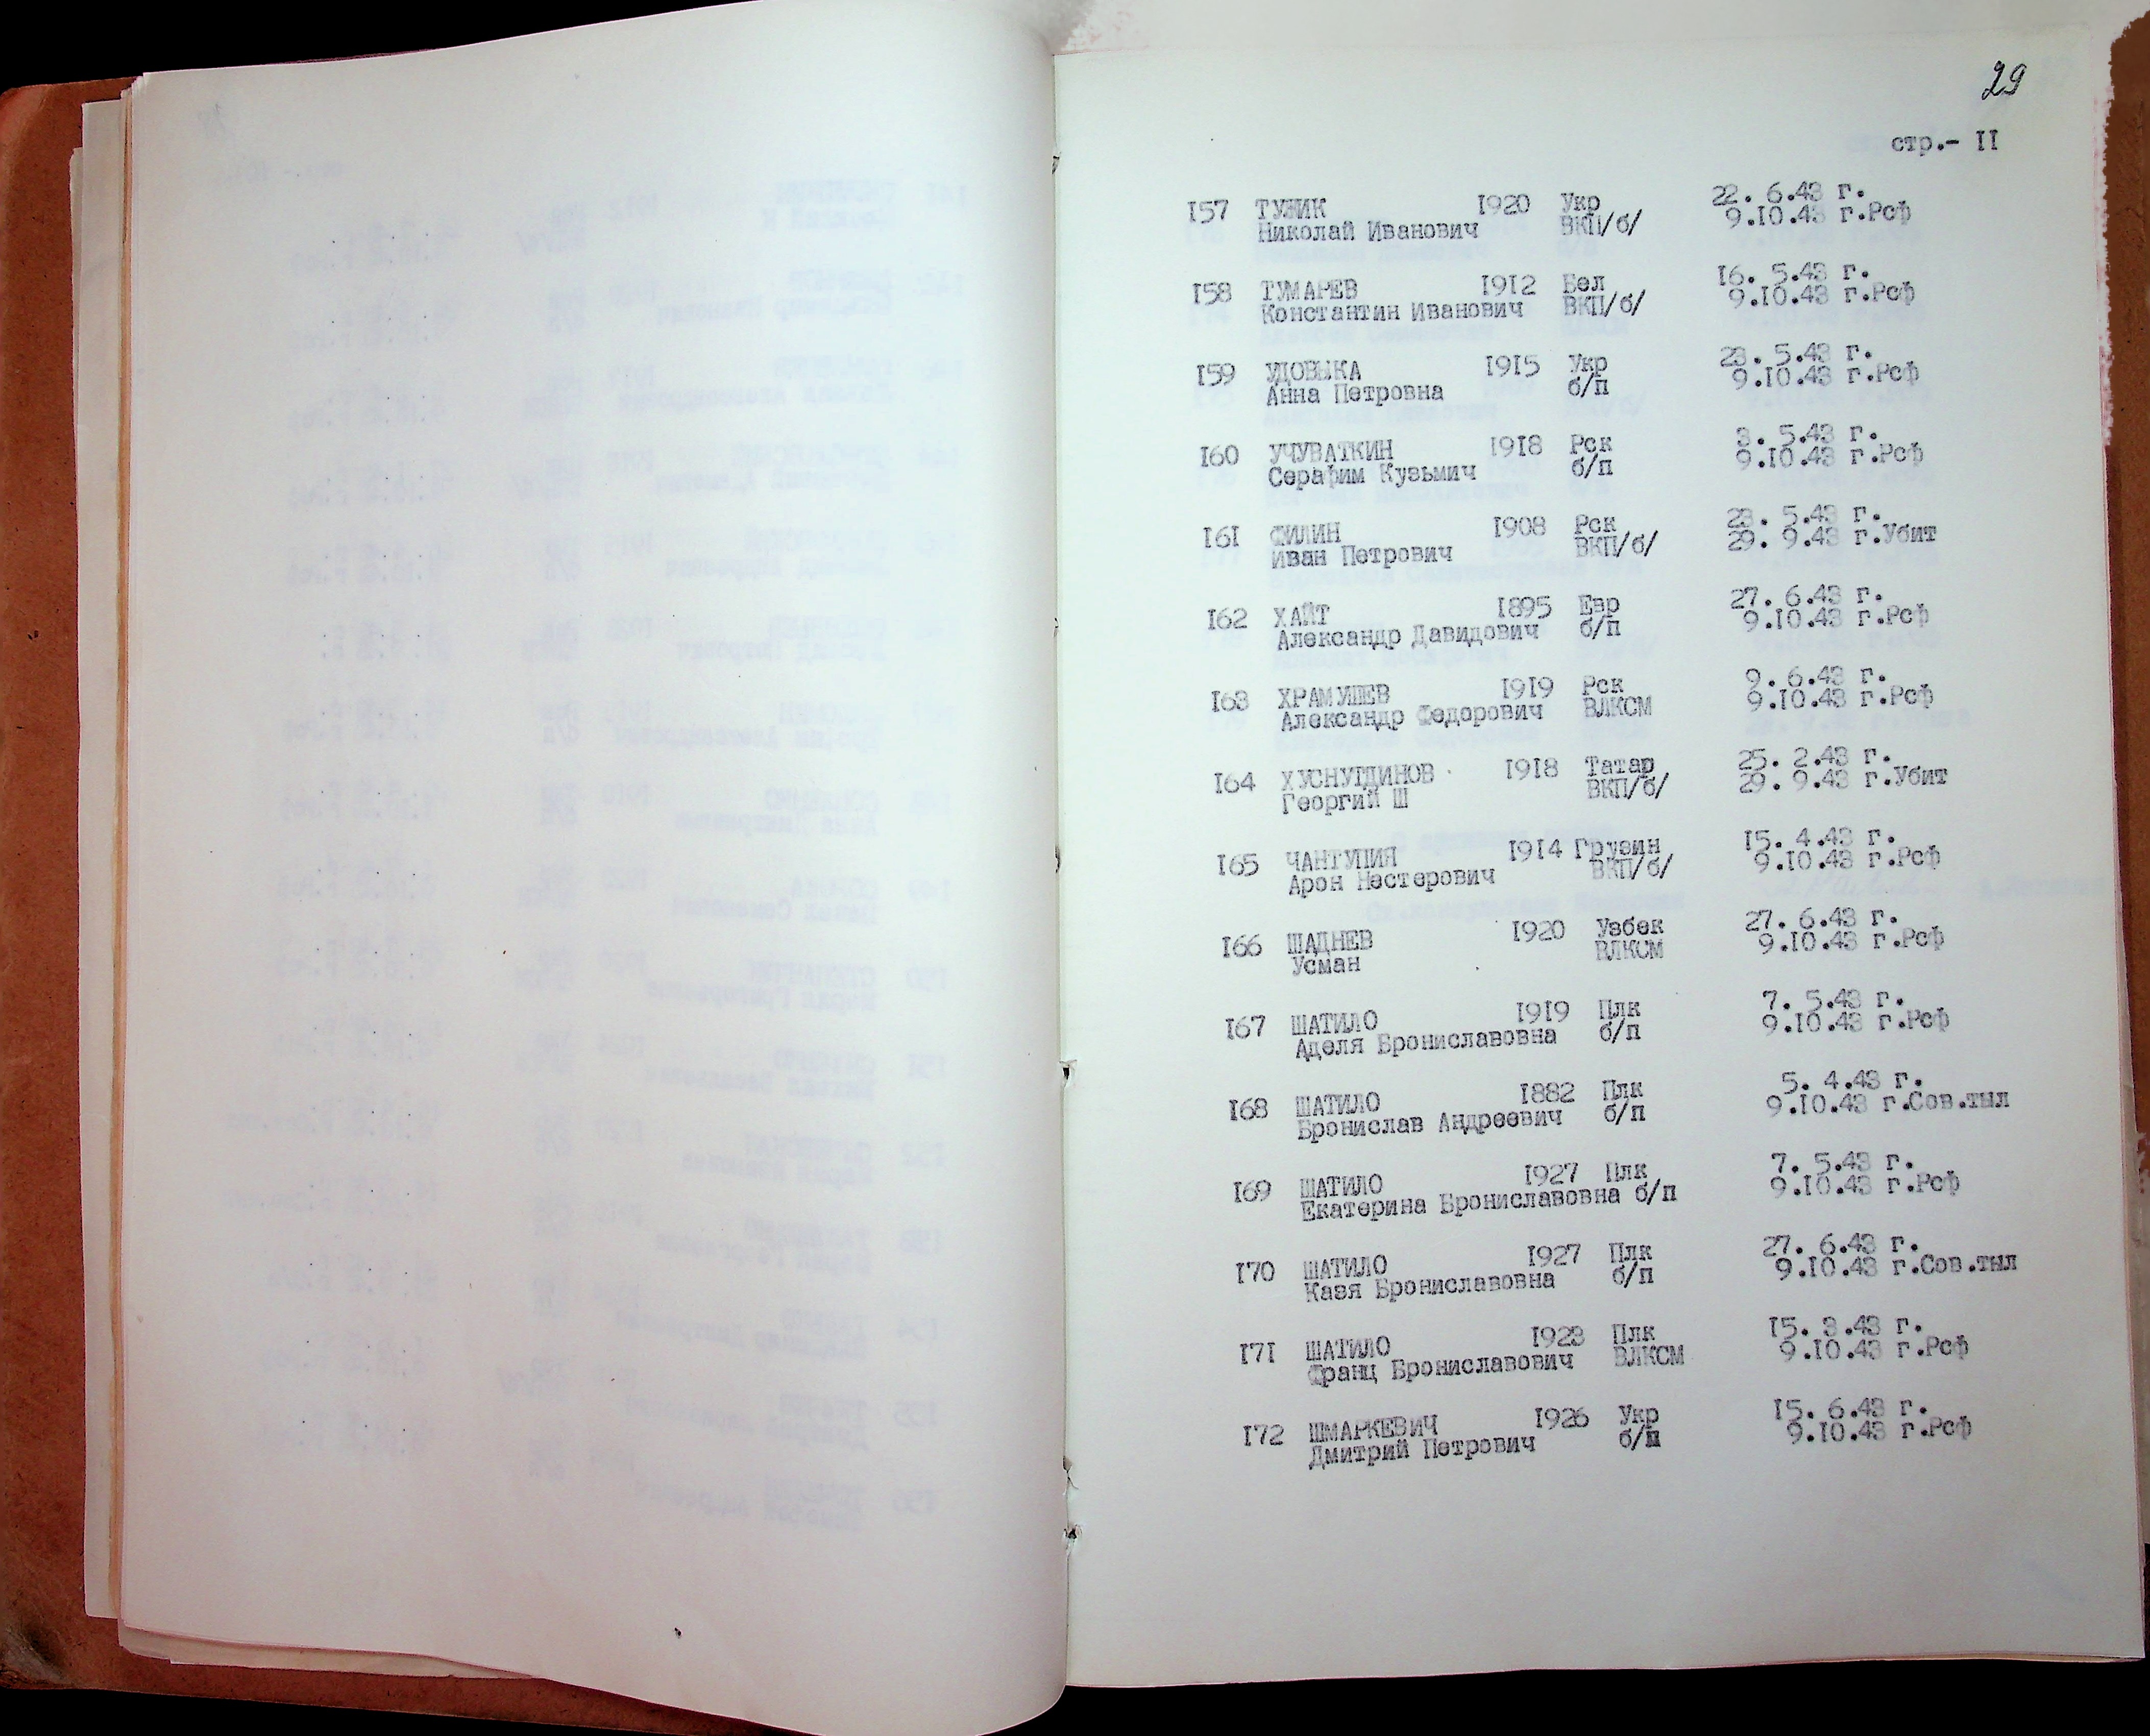 29
стр.- II
I57 ТУНИК I920 Укр 22. 6.43 г.
Николай Иванович ВКП/б/ 9.I0.43 г.Рсф
I58 ТУМАРЕВ I9I2 Бел I6. 5.43 г.
Константин Иванович ВКП/б/ 9.I0.43 г.Рсф
I59 УДОВЫКА I9I5 Укр 23. 5.43 г.
Анна Петровна б/п 9.I0.43 г.Рсф
I60 УЧУВАТКИН I9I8 Рск 3. 5.43 г.
Серафим Кузьмич б/п 9.I0.43 г.Рсф
I6I ФИЛИН I908 Рск 23. 5.43 г.
Иван Петрович ВКП/б/ 29. 9.43 г.Убит
I62 ХАЙТ I895 Евр 27. 6.43 г.
Александр Давидович б/п 9.I0.43 г.Рсф
I63 ХРАМУШЕВ I9I9 Рск 9. 6.43 г.
Александр Федорович ВЛКСМ 9.I0.43 г.Рсф
I64 ХУСНУТДИНОВ I9I8 Татар 25. 2.43 г.
Георгий Ш ВКП/б/ 29. 9.43 г.Убит
I65 ЧАНТУПИЯ I9I4 Грузин I5. 4.43 г.
Арон Нестерович ВКП/б/ 9.I0.43 г.Рсф
I66 ШАДНЕВ I920 Узбек 27. 6.43 г.
Усман ВЛКСМ 9.I0.43 г.Рсф
I67 ШАТИЛО I9I9 Плк 7. 5.43 г.
Аделя Брониславовна б/п 9.I0.43 г.Рсф
I68 ШАТИЛО I882 Плк 5. 4.43 г.
Бронислав Андреевич б/п 9.I0.43 г.Сов.тыл
I69 ШАТИЛО I927 Плк 7. 5.43 г.
Екатерина Брониславовна б/п 9.I0.43 г.Рсф
I70 ШАТИЛО I927 Плк 27. 6.43 г.
Казя Брониславовна б/п 9.I0.43 г.Сов.тыл
I7I ШАТИЛО I923 Плк I5. 3.43 г.
Франц Брониславович ВЛКСМ 9.I0.43 г.Рсф
I72 ШМАРКЕВИЧ I926 Укр I5. 6.43 г.
Дмитрий Петрович б/п 9.I0.43 г.Рсф